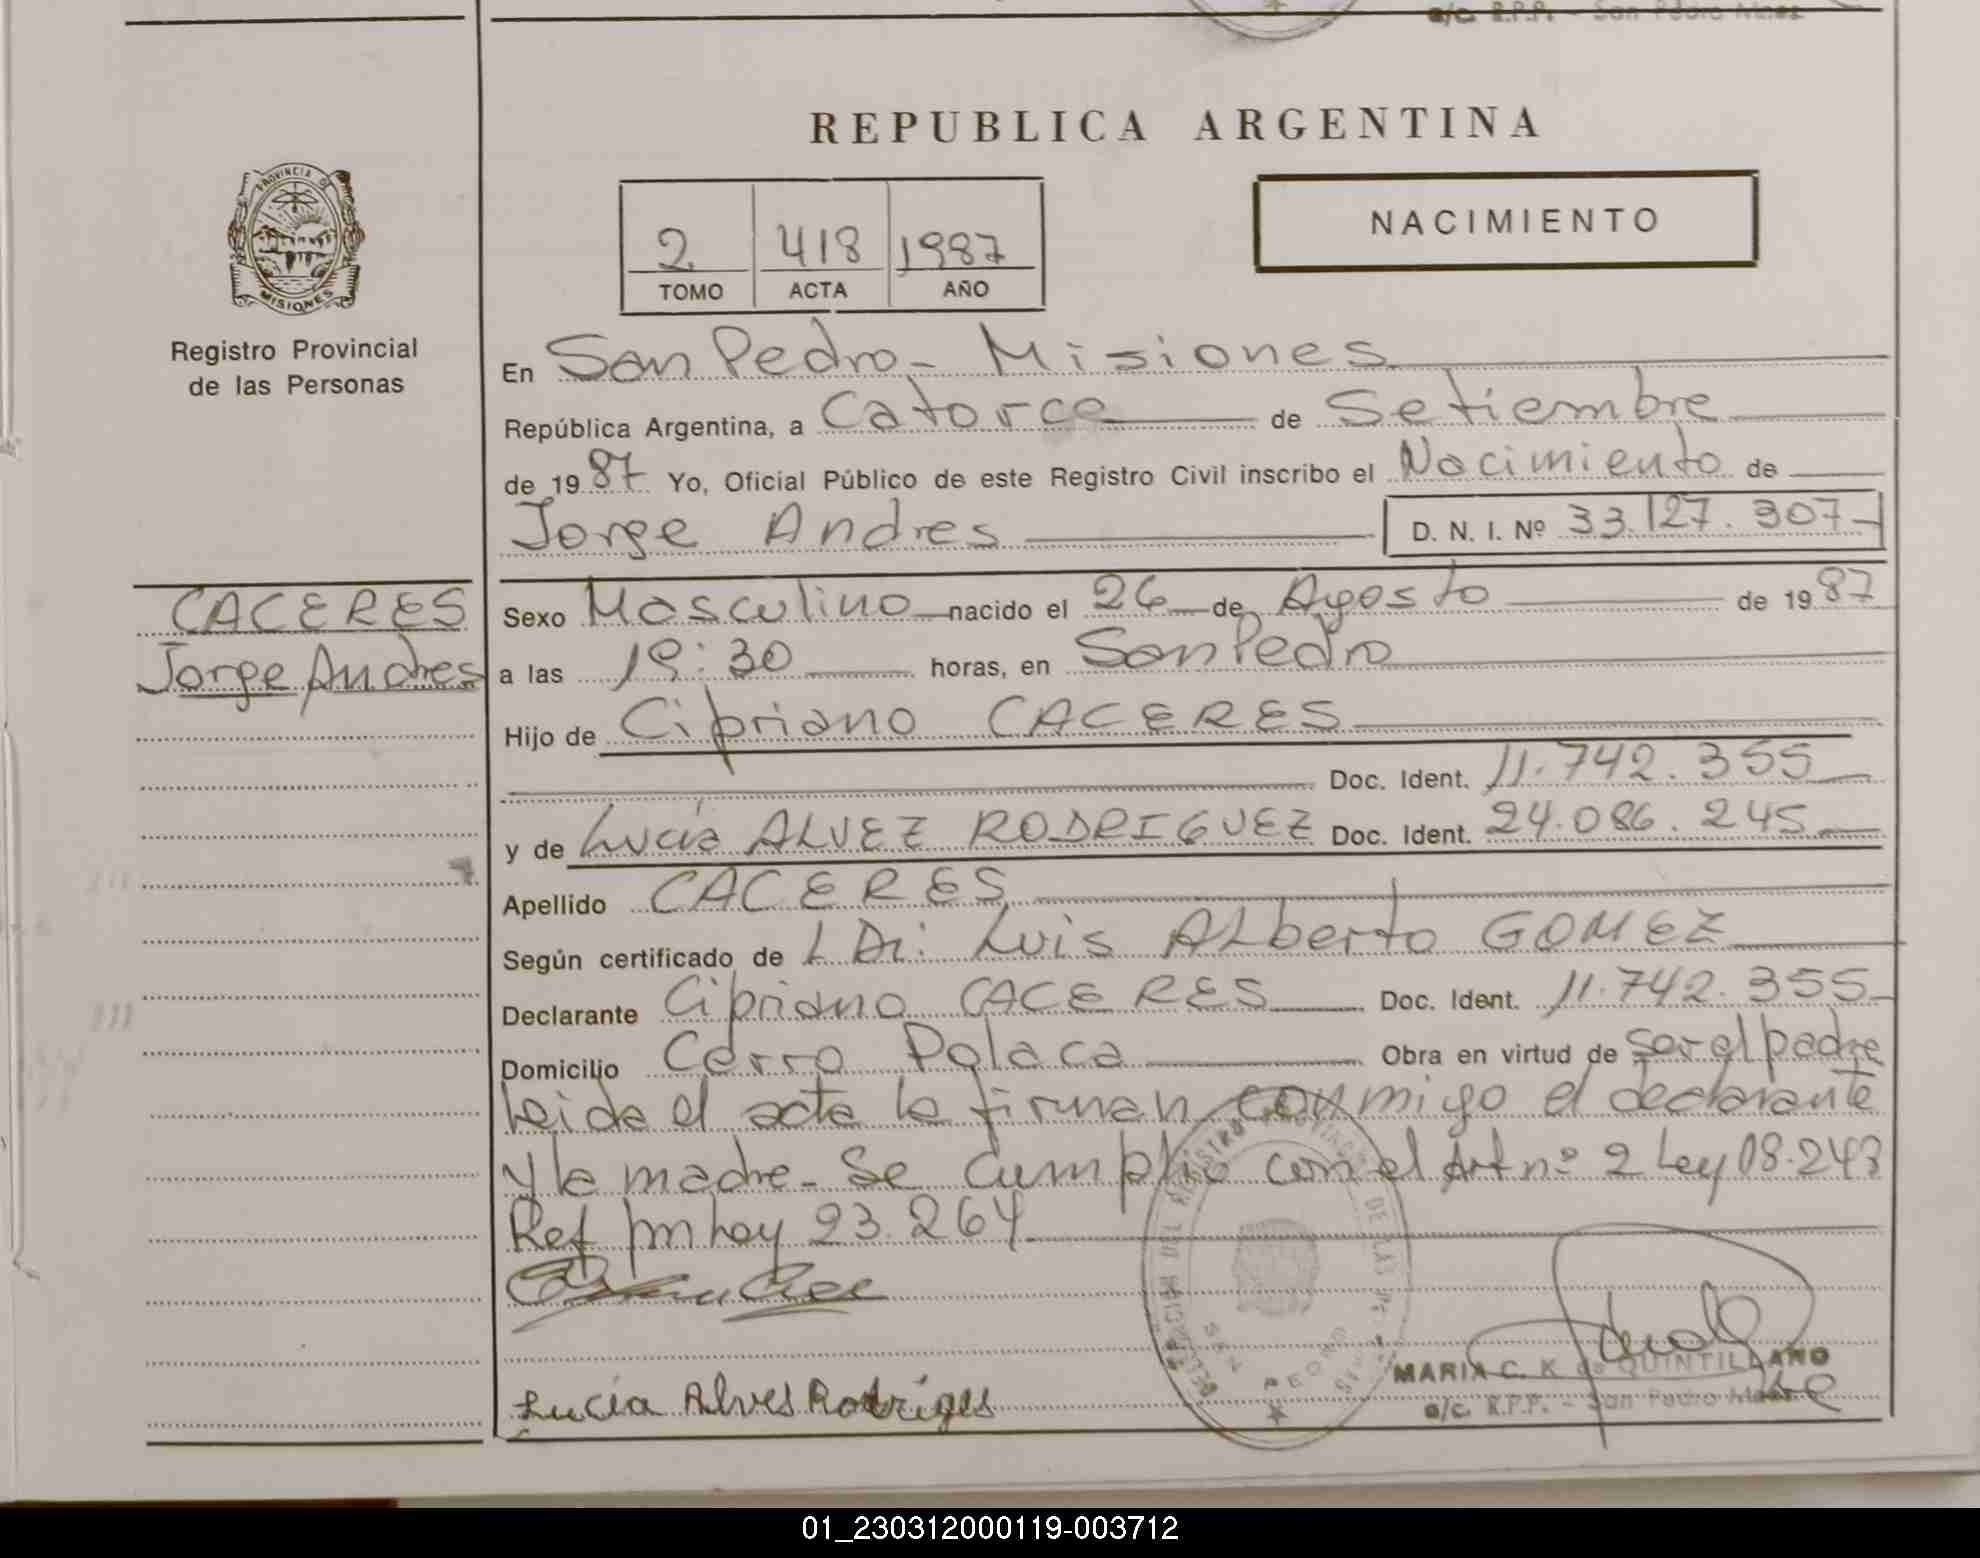 a/c. R.P.P. - San Pedro Mnes.
REPUBLICA ARGENTINA
PROVINCIA DE
MISIONES
Registro Provincial
de las Personas
2 418 1987
TOMO ACTA AÑO
NACIMIENTO
En San Pedro - Misiones
República Argentina, a Catorce de Setiembre
de 1987 Yo, Oficial Público de este Registro Civil inscribo el Nacimiento de
Jorge Andres D. N. I. Nº 33.127.307-
CACERES
Jorge Andres
Sexo Masculino nacido el 26 de Agosto de 1987
a las 19:30 horas, en San Pedro
Hijo de Cipriano CACERES
Doc. Ident. 11.742.355
y de Lucia ALVEZ RODRIGUEZ Doc. Ident. 24.086.245
Apellido CACERES
Según certificado de Dr: Luis Alberto GOMEZ
Declarante Cipriano CACERES Doc. Ident. 11.742.355
Domicilio Cerro Polaca Obra en virtud de ser el padre
Leida el acta la firman conmigo el declarante
y la madre - Se cumplio con el Art nº 2 Ley 18.248
Ref 23.264
Lucia Alves Rodriges
MARIA C. K de QUINTILLANO
a/c. R.P.P. - San Pedro Mnes.
01_230312000119-003712